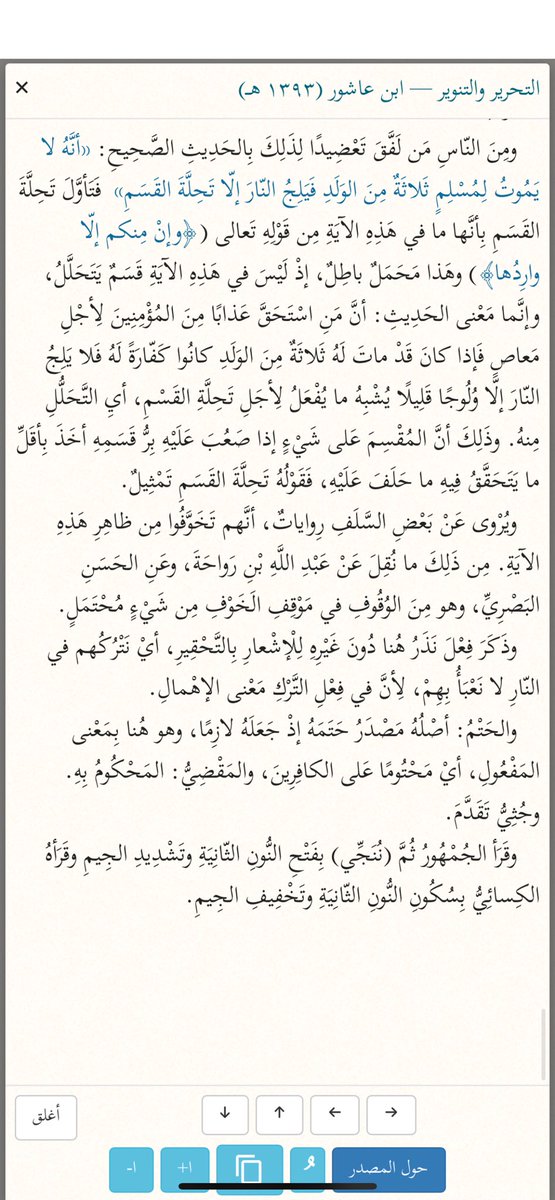 التحرير والتنوير — ابن عاشور (١٣٩٣ هـ)
×
ومِنَ النّاسِ مَن لَفَّقَ تَعْضِيدًا لِذَلِكَ بِالحَدِيثِ الصَّحِيحِ: «أنَّهُ لا
يَمُوتُ لِمُسْلِمٍ ثَلاثَةٌ مِنَ الوَلَدِ فَيَلِجُ النّارَ إلّا تَحِلَّةَ القَسَمِ» فَتَأوَّلَ تَحِلَّةَ
القَسَمِ بِأنَّها ما في هَذِهِ الآيَةِ مِن قَوْلِهِ تَعالى (﴿وإنْ مِنكم إلّا
وارِدُها﴾) وهَذا مَحْمَلٌ باطِلٌ، إذْ لَيْسَ في هَذِهِ الآيَةِ قَسَمٌ يَتَحَلَّلُ،
وإنَّما مَعْنى الحَدِيثِ: أنَّ مَنِ اسْتَحَقَّ عَذابًا مِنَ المُؤْمِنِينَ لِأجْلِ
مَعاصٍ فَإذا كانَ قَدْ ماتَ لَهُ ثَلاثَةٌ مِنَ الوَلَدِ كانُوا كَفّارَةً لَهُ فَلا يَلِجُ
النّارَ إلّا وُلُوجًا قَلِيلًا يُشْبِهُ ما يُفْعَلُ لِأجَلِ تَحِلَّةِ القَسْمِ، أيِ التَّحَلُّلِ
مِنهُ. وذَلِكَ أنَّ المُقْسِمَ عَلى شَيْءٍ إذا صَعُبَ عَلَيْهِ بِرُّ قَسَمِهِ أخَذَ بِأقَلِّ
ما يَتَحَقَّقُ فِيهِ ما حَلَفَ عَلَيْهِ، فَقَوْلُهُ تَحِلَّةَ القَسَمِ تَمْثِيلٌ.
ويُرْوى عَنْ بَعْضِ السَّلَفِ رِواياتٌ، أنَّهم تَخَوَّفُوا مِن ظاهِرِ هَذِهِ
الآيَةِ. مِن ذَلِكَ ما نُقِلَ عَنْ عَبْدِ اللَّهِ بْنِ رَواحَةَ، وعَنِ الحَسَنِ
البَصْرِيِّ، وهو مِنَ الوُقُوفِ في مَوْقِفِ الخَوْفِ مِن شَيْءٍ مُحْتَمَلٍ.
وذَكَرَ فِعْلَ نَذَرُ هُنا دُونَ غَيْرِهِ لِلْإشْعارِ بِالتَّحْقِيرِ، أيْ نَتْرُكُهم في
النّارِ لا نَعْبَأُ بِهِمْ، لِأنَّ في فِعْلِ التَّرْكِ مَعْنى الإهْمالِ.
والحَتْمُ: أصْلُهُ مَصْدَرُ حَتَمَهُ إذْ جَعَلَهُ لازِمًا، وهو هُنا بِمَعْنى
المَفْعُولِ، أيْ مَحْتُومًا عَلى الكافِرِينَ، والمَقْضِيُّ: المَحْكُومُ بِهِ.
وجُثِيٌّ تَقَدَّمَ.
وقَرَأ الجُمْهُورُ ثُمَّ (نُنَجِّي) بِفَتْحِ النُّونِ الثّانِيَةِ وتَشْدِيدِ الجِيمِ وقَرَأهُ
الكِسائِيُّ بِسُكُونِ النُّونِ الثّانِيَةِ وتَخْفِيفِ الجِيمِ.
→ ← ↑ ↓ أغلق
حول المصدر +١ -١